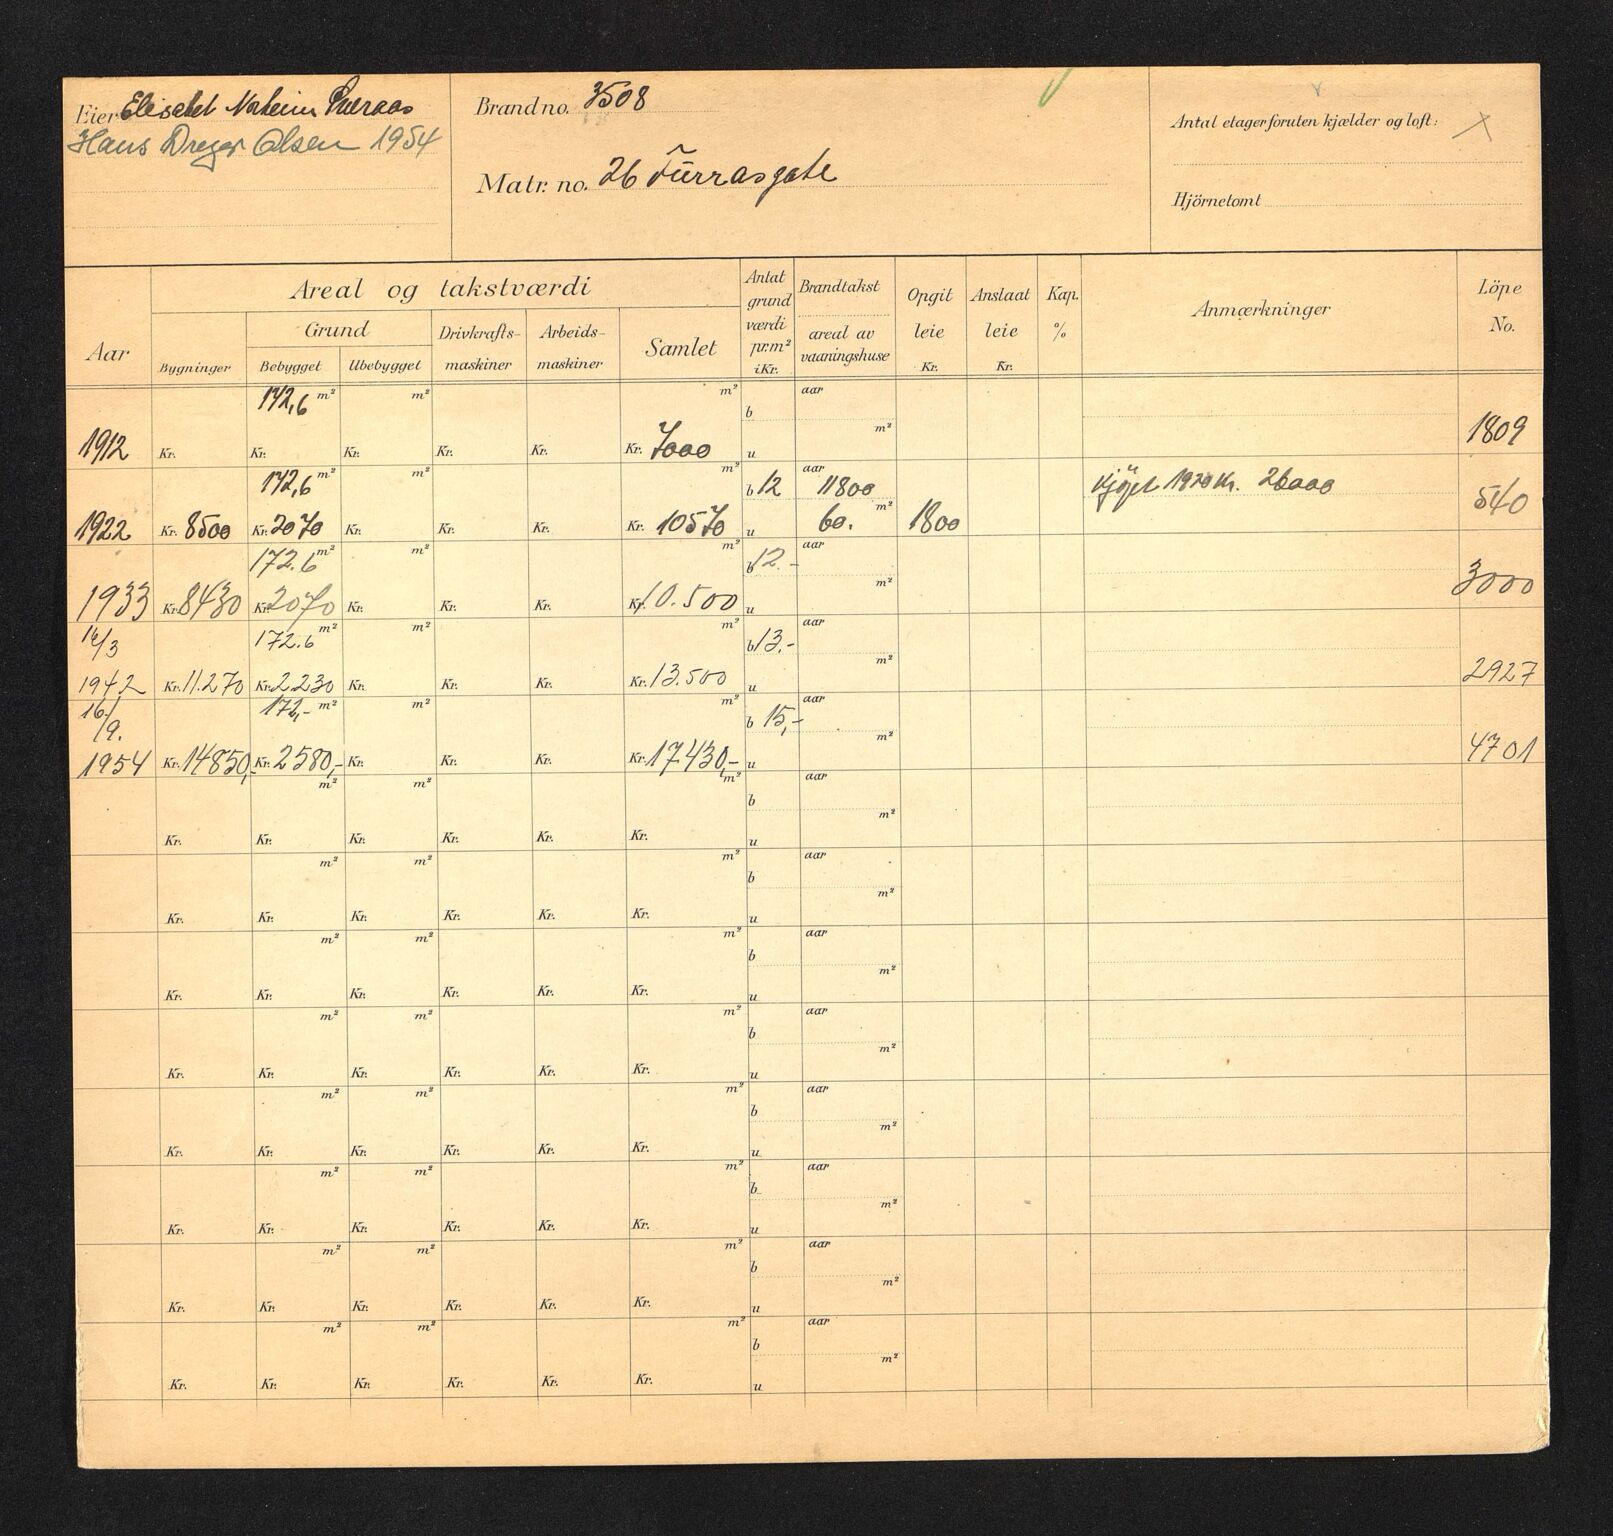 Eier Elisabet Norheim
Hans Dreyer Olsen 1954
Brand no. 3508
Matr. no. 26 Turrasgate
Antal etager foruten kjælder og loft:
Hjörnetomt
Aar
Areal og takstværdi
Bygninger
Grund
Bebygget Ubebygget
Drivkrafts-
maskiner
Arbeids-
maskiner
Samlet
Antat
grund
værdi
pr.m²
i Kr.
Brandtakst
areal av
vaaningshuse
Opgit
leie
Kr.
Anslaat
leie
Kr.
Kap.
%
Anmærkninger
Löpe
No.
172,6 m² m² m² b aar
1912 Kr. Kr. Kr. Kr. Kr. Kr. 7000 u m² 1809
172,6 m² m² m² b 12 aar 11800 Kjöpt 1920 Kr. 26000
1922 Kr. 8500 Kr. 2070 Kr. Kr. Kr. Kr. 10570 u 60. m² 1800 540
172.6 m² m² m² b 12.- aar
1933 Kr. 8430 Kr. 2070 Kr. Kr. Kr. Kr. 10.500 u m² 3000
16/3 172.6 m² m² m² b 13.- aar
1942 Kr. 11.270 Kr. 2.230 Kr. Kr. Kr. Kr. 13.500 u m² 2927
16/9. 172,- m² m² m² b 15,- aar
1954 Kr. 14850,- Kr. 2580,- Kr. Kr. Kr. Kr. 17430,- u m² 4701
m² m² m² b aar
Kr. Kr. Kr. Kr. Kr. Kr. u m²
m² m² m² b aar
Kr. Kr. Kr. Kr. Kr. Kr. u m²
m² m² m² b aar
Kr. Kr. Kr. Kr. Kr. Kr. u m²
m² m² m² b aar
Kr. Kr. Kr. Kr. Kr. Kr. u m²
m² m² m² b aar
Kr. Kr. Kr. Kr. Kr. Kr. u m²
m² m² m² b aar
Kr. Kr. Kr. Kr. Kr. Kr. u m²
m² m² m² b aar
Kr. Kr. Kr. Kr. Kr. Kr. u m²
m² m² m² b aar
Kr. Kr. Kr. Kr. Kr. Kr. u m²